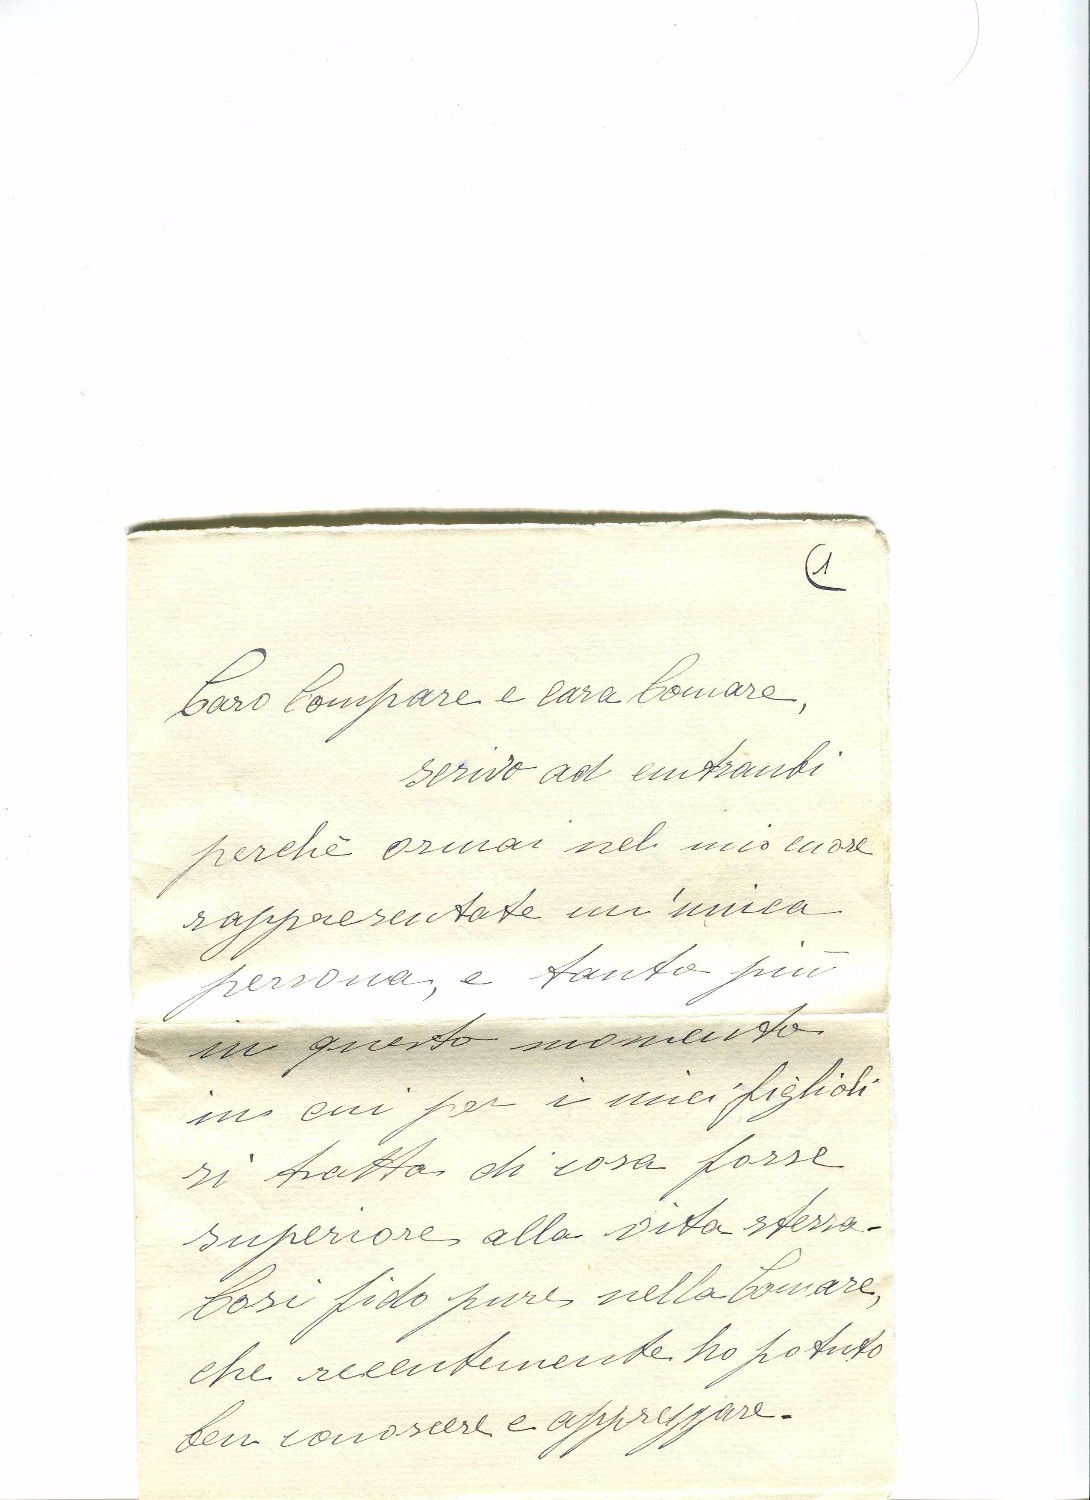 1
Caro Compare e cara Comare,
scrivo ad entrambi
perchè ormai nel mio cuore
rappresentate un'unica
persona, e tanto più
in questo momento
in cui per i miei figlioli
si tratta di cosa forse
superiore alla vita stessa.
Così fido pure nella Comare,
che recentemente ho potuto
ben conoscere e apprezzare.